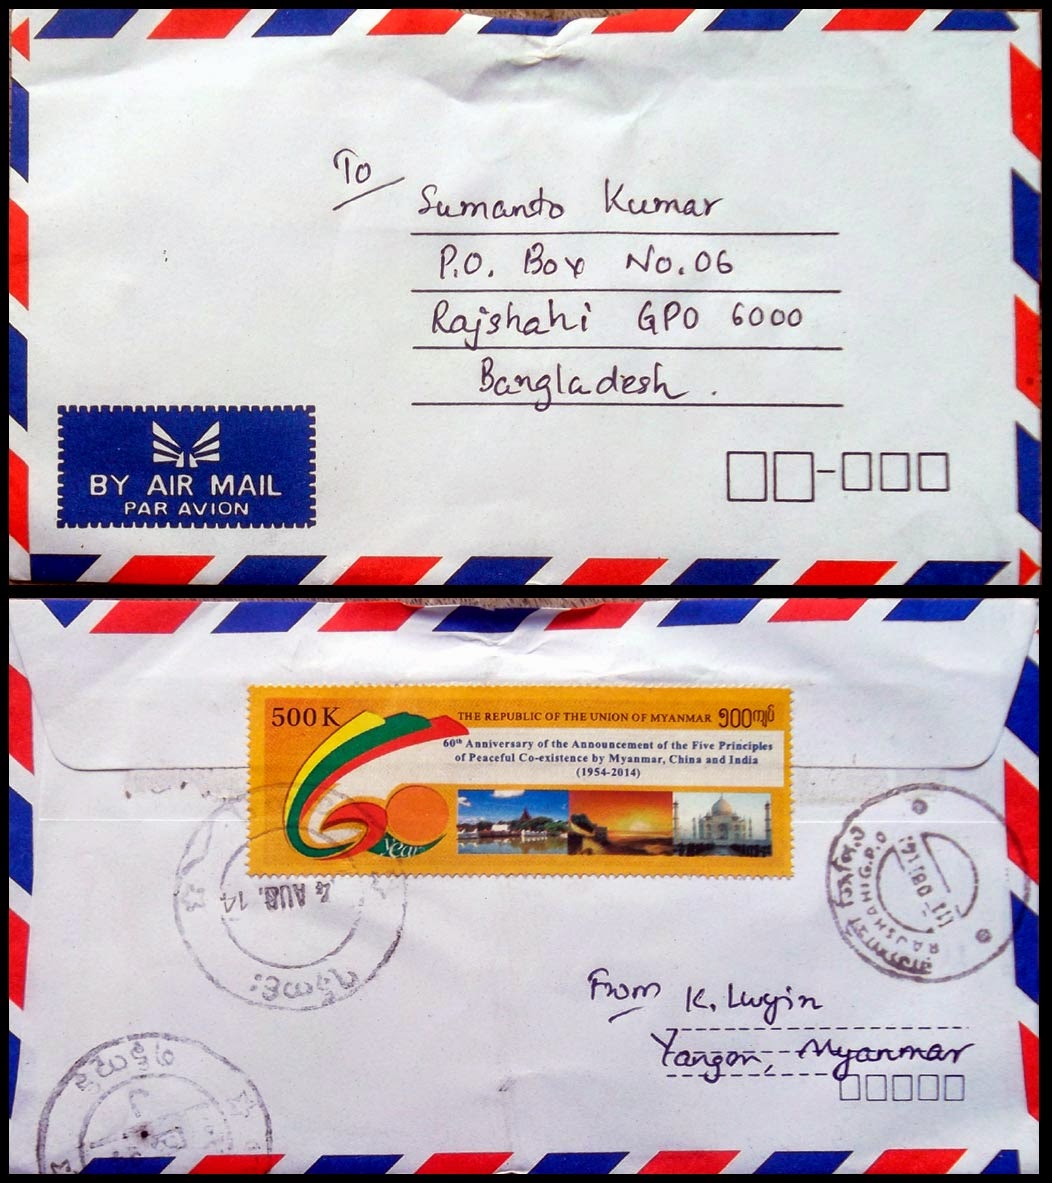 To
Sumanto Kumar
P.O. Box No.06
Rajshahi GPO 6000
Bangladesh.
BY AIR MAIL
PAR AVION
500 K
THE REPUBLIC OF THE UNION OF MYANMAR ၅၀၀ကျပ်
60th Anniversary of the Announcement of the Five Principles
of Peaceful Co-existence by Myanmar, China and India
(1954-2014)
years
4 AUG. 14
RAJSHAHI G.P.O
From K. Lwyin
Yangon, Myanmar